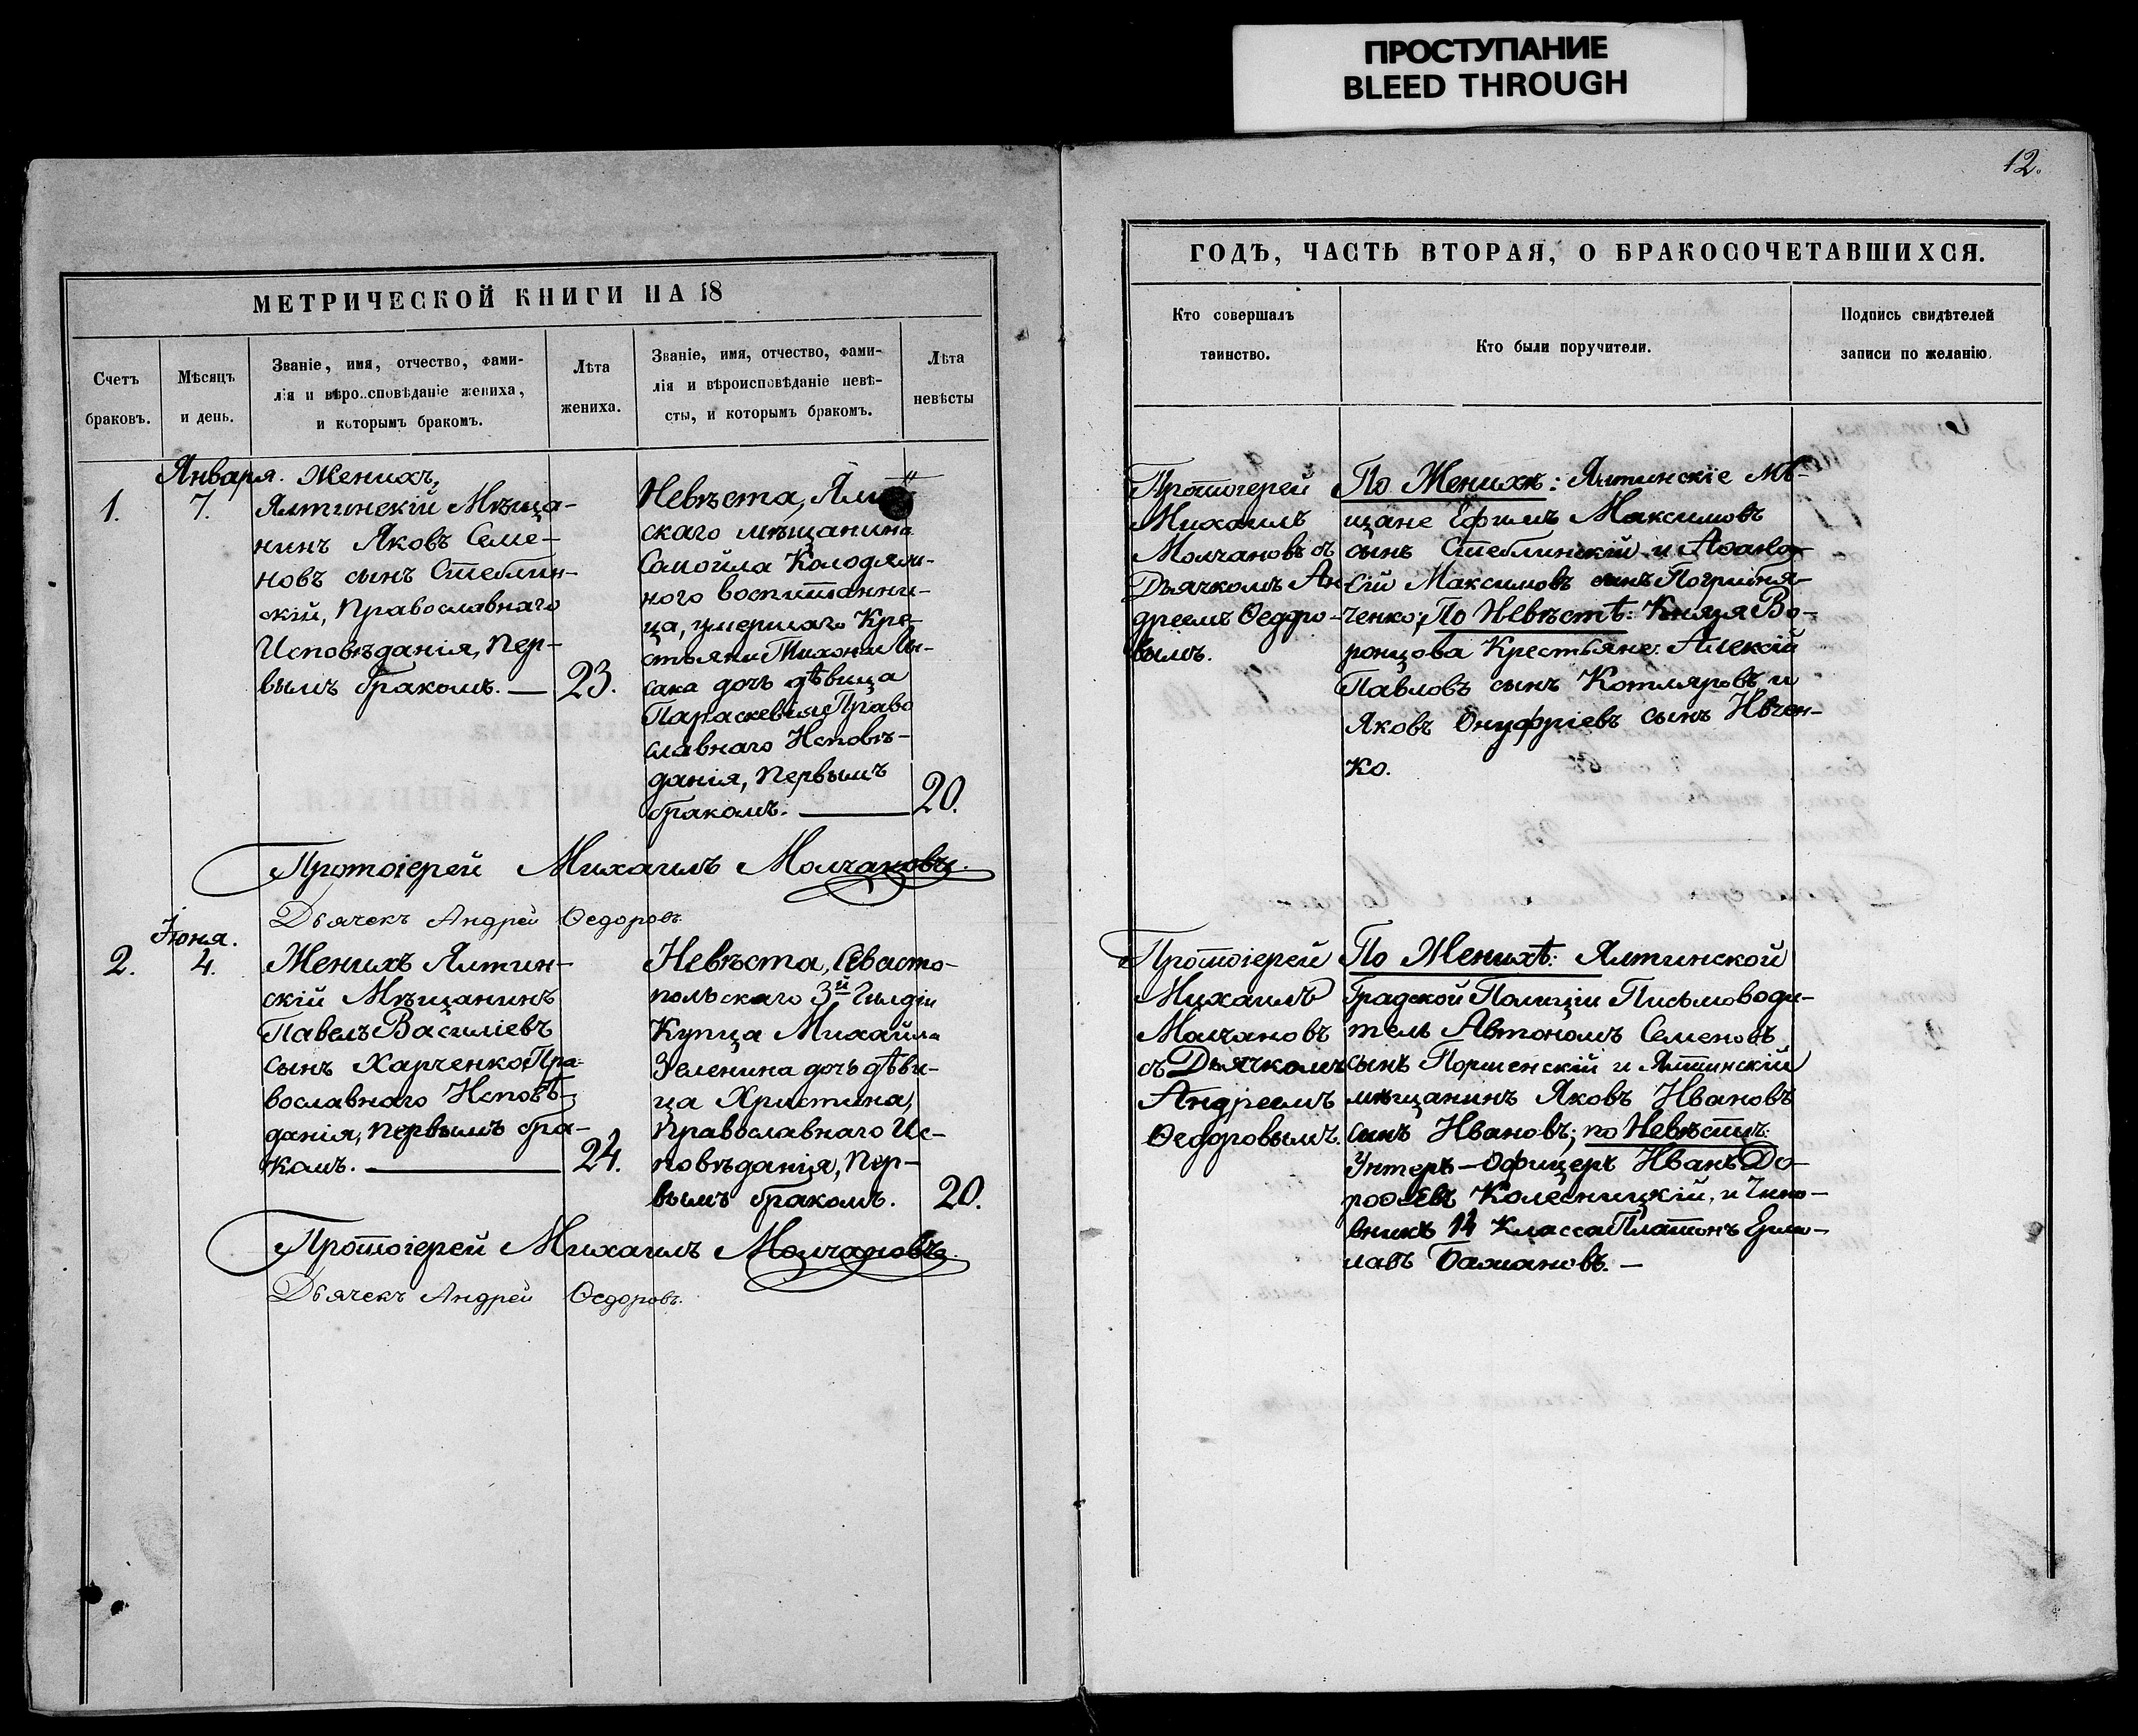 ПРОСТУПАНИЕ
BLEED THROUGH
12.
МЕТРИЧЕСКОЙ КНИГИ НА 18
Счетъ браковъ.
Мѣсяцъ и день.
Званіе, имя, отчество, фами-
лія и вѣроисповѣданіе жениха,
и которымъ бракомъ.
Лѣта жениха.
Званіе, имя, отчество, фами-
лія и вѣроисповѣданіе невѣ-
сты, и которымъ бракомъ.
Лѣта невѣсты
1.
Января.
7.
Женихъ,
Ялтинскій Мѣща-
нинъ Яковъ Семе-
новъ сынъ Стеблин-
скій, Православнаго
Исповѣданія, пер-
вымъ бракомъ. —
23.
Невѣста, Ялт
скаго мѣщанина
Самойла Колодяж-
ного воспитанни-
ца, умершаго Кре-
стьяни Тихона Лы-
сака дочь дѣвица
Параскевія, Право
славнаго Исповѣ-
данія, первымъ
бракомъ. —
20.
Протоіерей Михаилъ Молчановъ.
Дьячекъ Андрей Ѳедоровъ.
2.
Іюня.
4.
Женихъ Ялтин-
скій Мѣщанинъ
Павелъ Василіевъ
сынъ Харченко, Пра-
вославнаго Исповѣ-
данія, первымъ бра-
комъ. —
24.
Невѣста, Севасто-
польскаго 3й Гилдіи
Купца Михайла
Зеленина дочь дѣви-
ца Христина,
Православнаго Ис-
повѣданія, пер-
вымъ бракомъ.
20.
Протоіерей Михаилъ Молчановъ.
Дьячекъ Андрей Ѳедоровъ.
ГОДЪ, ЧАСТЬ ВТОРАЯ, О БРАКОСОЧЕТАВШИХСЯ.
Кто совершалъ
таинство.
Кто были поручители.
Подпись свидѣтелей
записи по желанію.
Протоіерей
Михаилъ
Молчановъ съ
Дьячкомъ Ан
дреемъ Ѳедоро-
вымъ.
По Женихѣ: Ялтинскіе Мѣ-
щане Ефимъ Максимовъ
сынъ Стеблинскій и Аѳана-
сій Максимовъ сынъ Погрибня-
ченко; По Невѣстѣ: Князя Во-
ронцова Крестьяне: Алексій
Павловъ сынъ Котляровъ и
Яковъ Онуфріевъ сынъ Ивчен-
ко.
Протоіерей
Михаилъ
Молчановъ
съ Дьячкомъ
Андреемъ
Ѳедоровымъ.
По Женихѣ: Ялтинской
Градской Полиціи Письмоводи-
тель Автономъ Семеновъ
сынъ Поршенскій и Ялтинскій
мѣщанинъ Яковъ Ивановъ
сынъ Ивановъ; по Невѣстѣ:
Унтеръ-Офицеръ Иванъ До-
роѳѣевъ Колесницкій, и Чино-
вникъ 14 Класса Платонъ Ермо-
лавъ Бажановъ. —